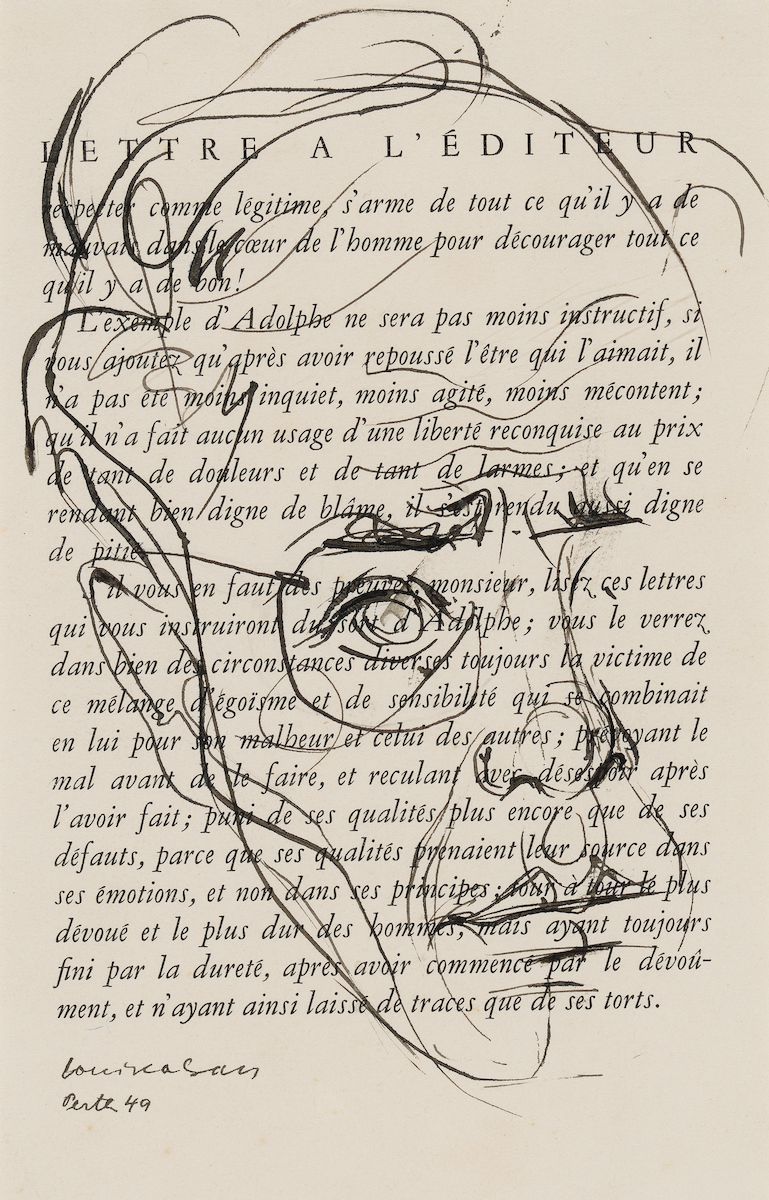 LETTRE A L'ÉDITEUR
respecter comme légitime, s'arme de tout ce qu'il y a de
mauvais dans le cœur de l'homme pour décourager tout ce
qu'il y a de bon!
L'exemple d'Adolphe ne sera pas moins instructif, si
vous ajoutez qu'après avoir repoussé l'être qui l'aimait, il
n'a pas été moins inquiet, moins agité, moins mécontent;
qu'il n'a fait aucun usage d'une liberté reconquise au prix
de tant de douleurs et de tant de larmes; et qu'en se
rendant bien digne de blâme, il s'est rendu aussi digne
de pitié.
S'il vous en faut des preuves, monsieur, lisez ces lettres
qui vous instruiront du sort d'Adolphe; vous le verrez
dans bien des circonstances diverses toujours la victime de
ce mélange d'égoïsme et de sensibilité qui se combinait
en lui pour son malheur et celui des autres; prévoyant le
mal avant de le faire, et reculant avec désespoir après
l'avoir fait; puni de ses qualités plus encore que de ses
défauts, parce que ses qualités prenaient leur source dans
ses émotions, et non dans ses principes; tour à tour le plus
dévoué et le plus dur des hommes, mais ayant toujours
fini par la dureté, après avoir commencé par le dévoû-
ment, et n'ayant ainsi laissé de traces que de ses torts.
Louis Kahan
Perth 49